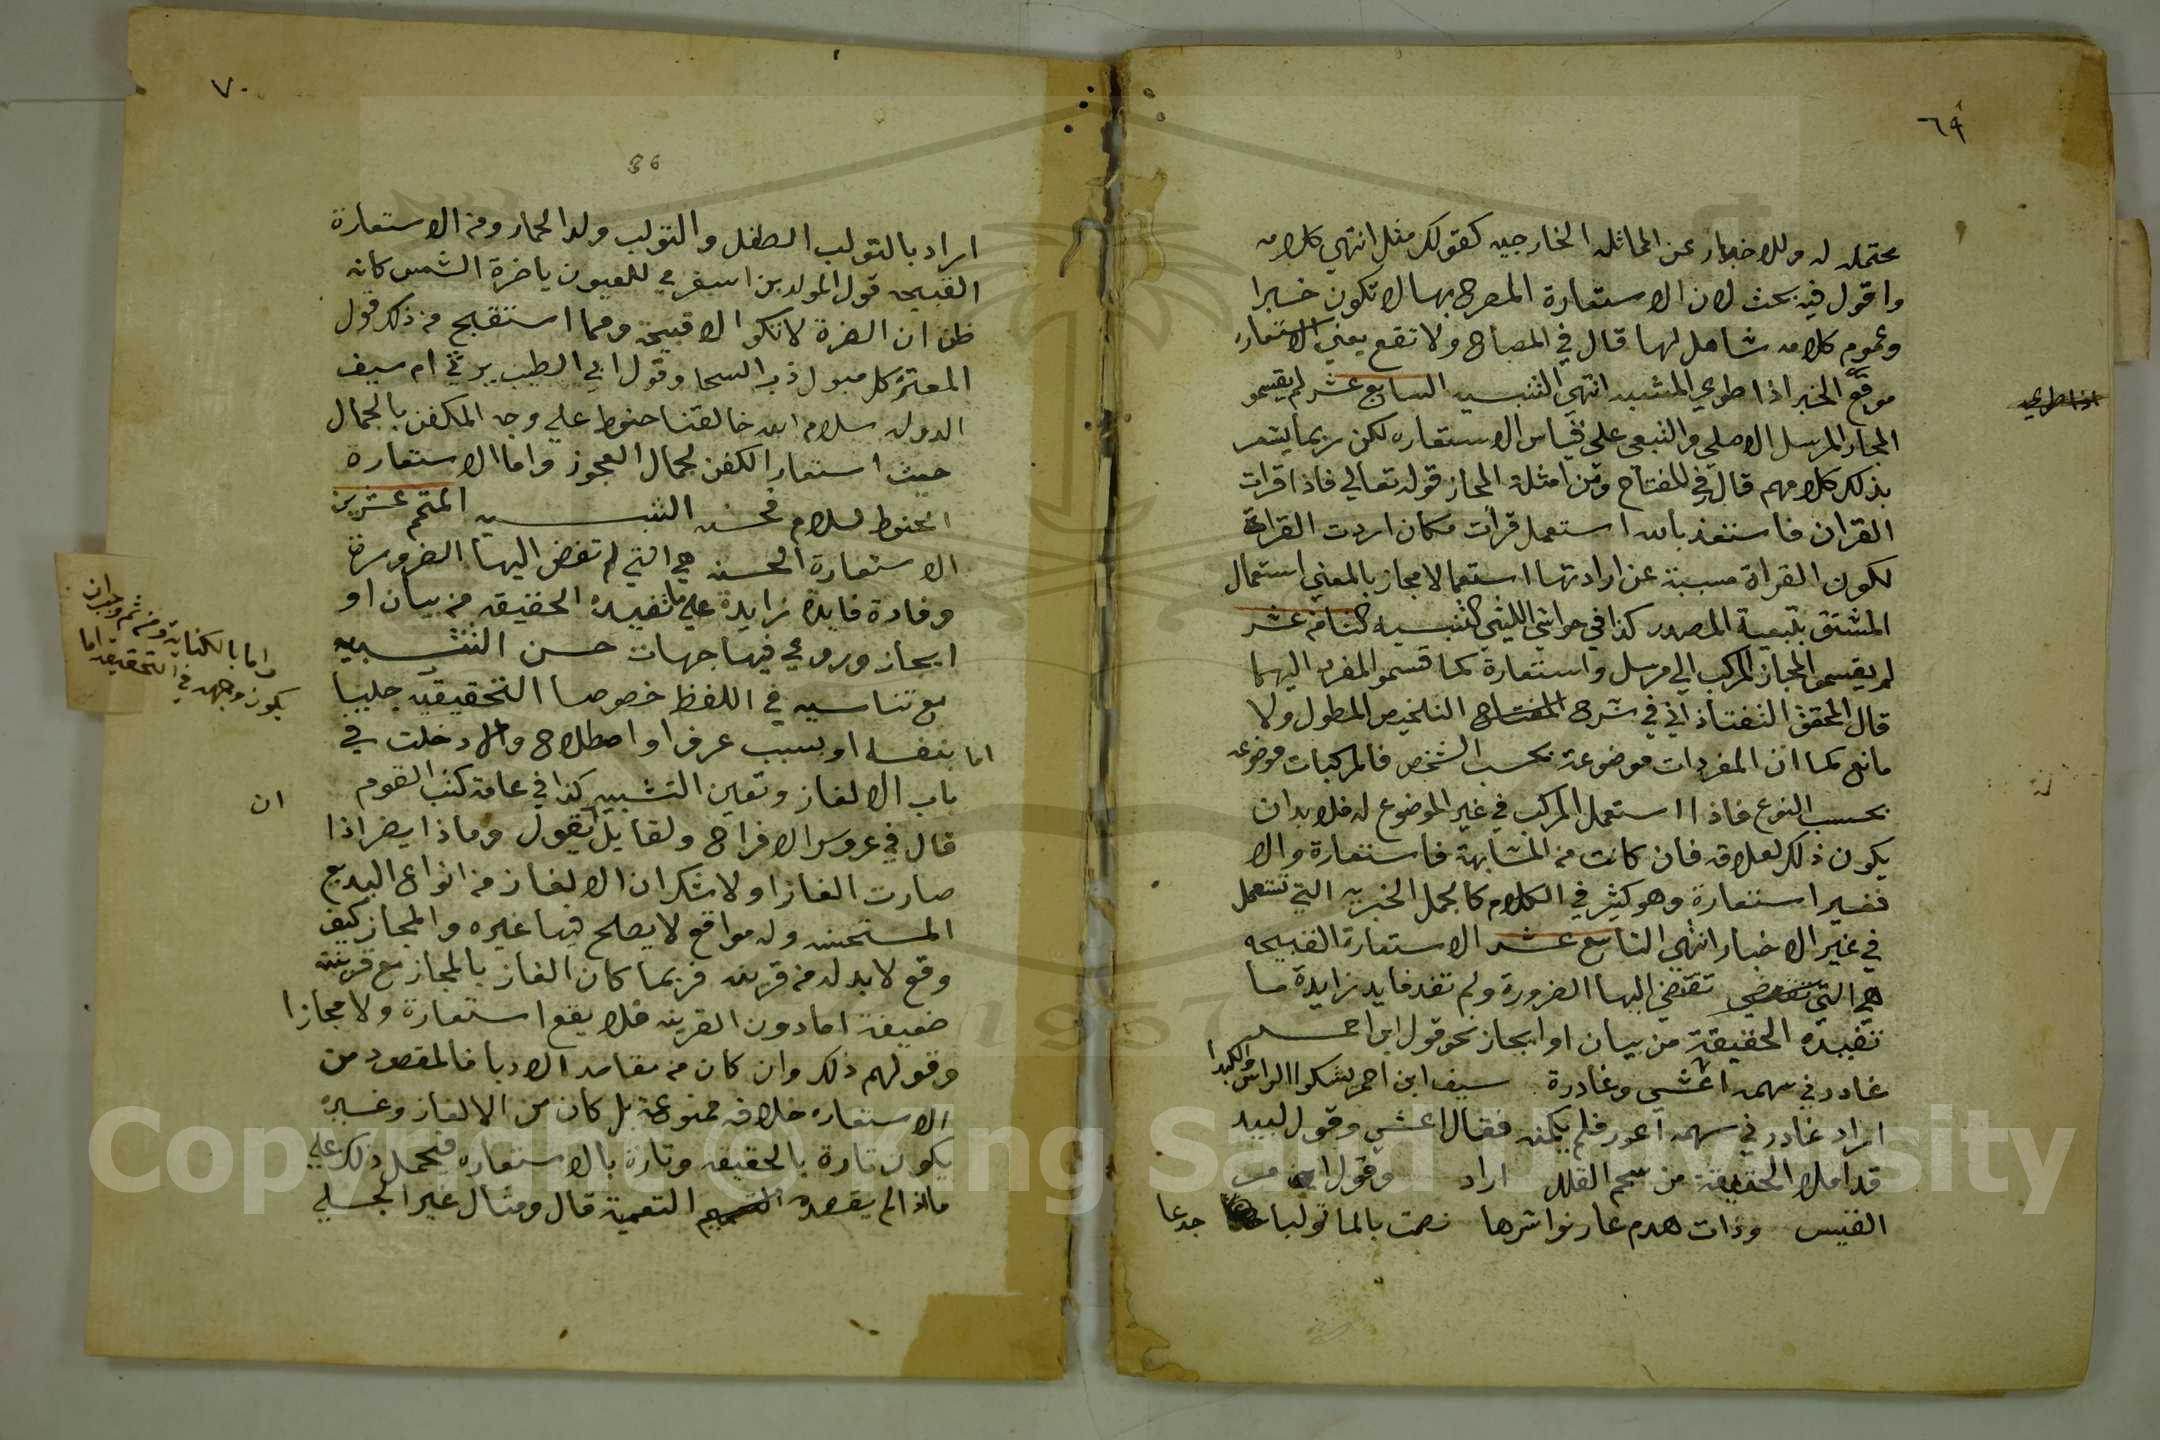 ٦٩
محتملة له وللاخبار عن المماثله الخارجيه كقولك مثل انتهي كلامه
واقول فيه بحث لان الاستعارة المصرح بها لا تكون خبرا
وعموم كلامه شامل لها قال في المصباح ولا تقع يعني الاستعاره
موقع الخبر اذا طوي المشبه انتهي التنبيه السابع عشر لم يقسمو
اذا طوي
المجاز المرسل الاصلي والتبعي علي قياس الاستعاره لكن ربما يشعر
بذلك كلامهم قال في المفتاح ومن امثلة المجاز قوله تعالي فاذا قرات
القران فاستعذ بالله استعمل قرأت مكان اردت القراة
لكون القراة مسببة عن ارادتها استعمالا مجاز بالمعني استعمال
المشتق بتبعية المصدر كذا في حواشي الليثي التنبيه الثامن عشر
لم يقسمو المجاز المركب الي مرسل واستعارة كما قسمو المفرد اليهما
قال المحقق التفتازاني في شرح المفتاح التلخيص المطول ولا
مانع كما ان المفردات موضوعة بحسب الشخص فالمركبات موضوعه
بحسب النوع فاذا استعمل المركب في غير الموضوع له فلا بد ان
يكون ذلك لعلاقه فان كانت من المشابهة فاستعارة والا
فغير استعارة وهو كثير في الكلام كالجمل الخبريه التي تستعمل
في غير الاخبار انتهي التاسع عشر الاستعارة القبيحه
هي التي تقتضي اليها الضرورة ولم تفد فايدة زايدة ما
تفيده الحقيقة من بيان او ايجاز نحو قول ابن احمر
غادر في سهمه اعشي وغادرة سيف ابن احمر يشكوا الراس والكبدا
اراد غادر في سهمه اعور فلم يمكنه فقال اعشي وقول لبيد
قد املا الحقيقة من شحم القلل اراد وقول
القيس وذات هدم عار نواشرها تصمت بالما تولبا جدعا
٧٠
36
اراد بالتولب الطفل والتولب ولد الحمار ومن الاستعارة
القبيحه قول المولدين اسفرمي للعيون ياضرة الشمس كانه
ظن ان الضرة لا تكو الا قبيحة ومما استقبح من ذلك قول
المعتز كل مبول ذب السحا وقول ابي الطيب يرثي ام سيف
الدوله سلام الله خالقنا حنوط علي وجه المكفن بالجمال
حيث استعار الكفن لجمال العجوز واما الاستعارة
الحنوط للسلام فحسنه التنبيه المتمم عشرين
الاستعارة الحسنه هي التي لم تفض اليها الضرورة
وفادة فايدة زايدة علي ما تفيده الحقيقه من بيان او
ايجاز وروعي فيها جهات حسن التشبيه
مع تناسيه في اللفظ خصوصا التحقيقيه جليبا
اما بنفسه او بسبب عرف او اصطلاح والا دخلت في
باب الالغاز وتعين التشبيه كذا في عامة كتب القوم
قال في عروس الافراح ولقايل ان يقول وماذا يضر اذا
ان
صارت الغازا ولا شك ان الالغاز من انواع البديع
المستحسنه وله مواقع لا يصلح فيها غيره والمجاز كيف
وقع لا بد له من قرينه فربما كان الغاز بالمجاز مع قرينة
ضعيفة اما دون القرينه فلا يقع استعارة ولا مجازا
وقولهم ذلك وان كان من مقاصد الادبا فالمقصود من
الاستعاره خلافه ممنوعة بل كان من الالغاز وغيره
يكون تارة بالحقيقه وتارة بالاستعاره فيحمل ذلك علي
ما اذا لم يقصده التعمية قال ومثال غير الجلي
واما بالكناية ومن ثم وجدان
يكون وجهه في التحقيقيه اما
Copyright © King Saud University
1957